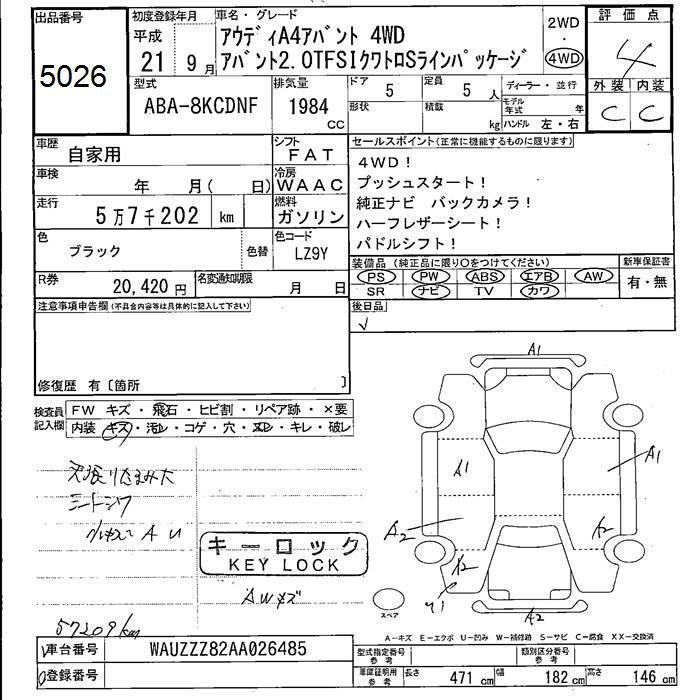 出品番号
5026
初度登録年月
平成
21 9月
車名・グレード
アウディA4アバント 4WD
アバント2.0TFSIクワトロSラインパッケージ
2WD
・
4WD
評価点
4
外装 内装
C C
型式
ABA-8KCDNF
排気量
1984
CC
ドア 5
形状
定員 5 人
積載 kg
ディーラー・並行
モデル年式 年
ハンドル 左・右
車歴
自家用
シフト
FAT
車検
年 月( 日)
冷房
WAAC
走行
5万7千202 km
燃料
ガソリン
色
ブラック
色替
色コード
LZ9Y
R券
20,420円
名変通知期限
月 日
セールスポイント(正常に機能するものに限ります)
4WD!
プッシュスタート!
純正ナビ バックカメラ!
ハーフレザーシート!
パドルシフト!
装備品 (純正品に限り○をつけてください)
PS PW ABS エアB AW
SR ナビ TV カワ
新車保証書
有・無
後日品
注意事項申告欄(不具合内容等は具体的に記入して下さい)
修復歴 有〔箇所 〕
検査員記入欄
FW キズ・飛石・ヒビ割・リペア跡・×要
内装 キズ・汚レ・コゲ・穴・スレ・キレ・破レ
シートシワ
キーロック
KEY LOCK
AWキズ
57209km
A1
A1
A1
A2
A2
A2
A2
スペア
A-キズ E-エクボ U-凹み W-補修跡 S-サビ C-腐食 XX-交換済
車台番号
WAUZZZ82AA026485
登録番号
型式指定番号
参考
類別区分番号
参考
車庫証明用
参考
長さ 471 cm 幅 182 cm 高さ 146 cm